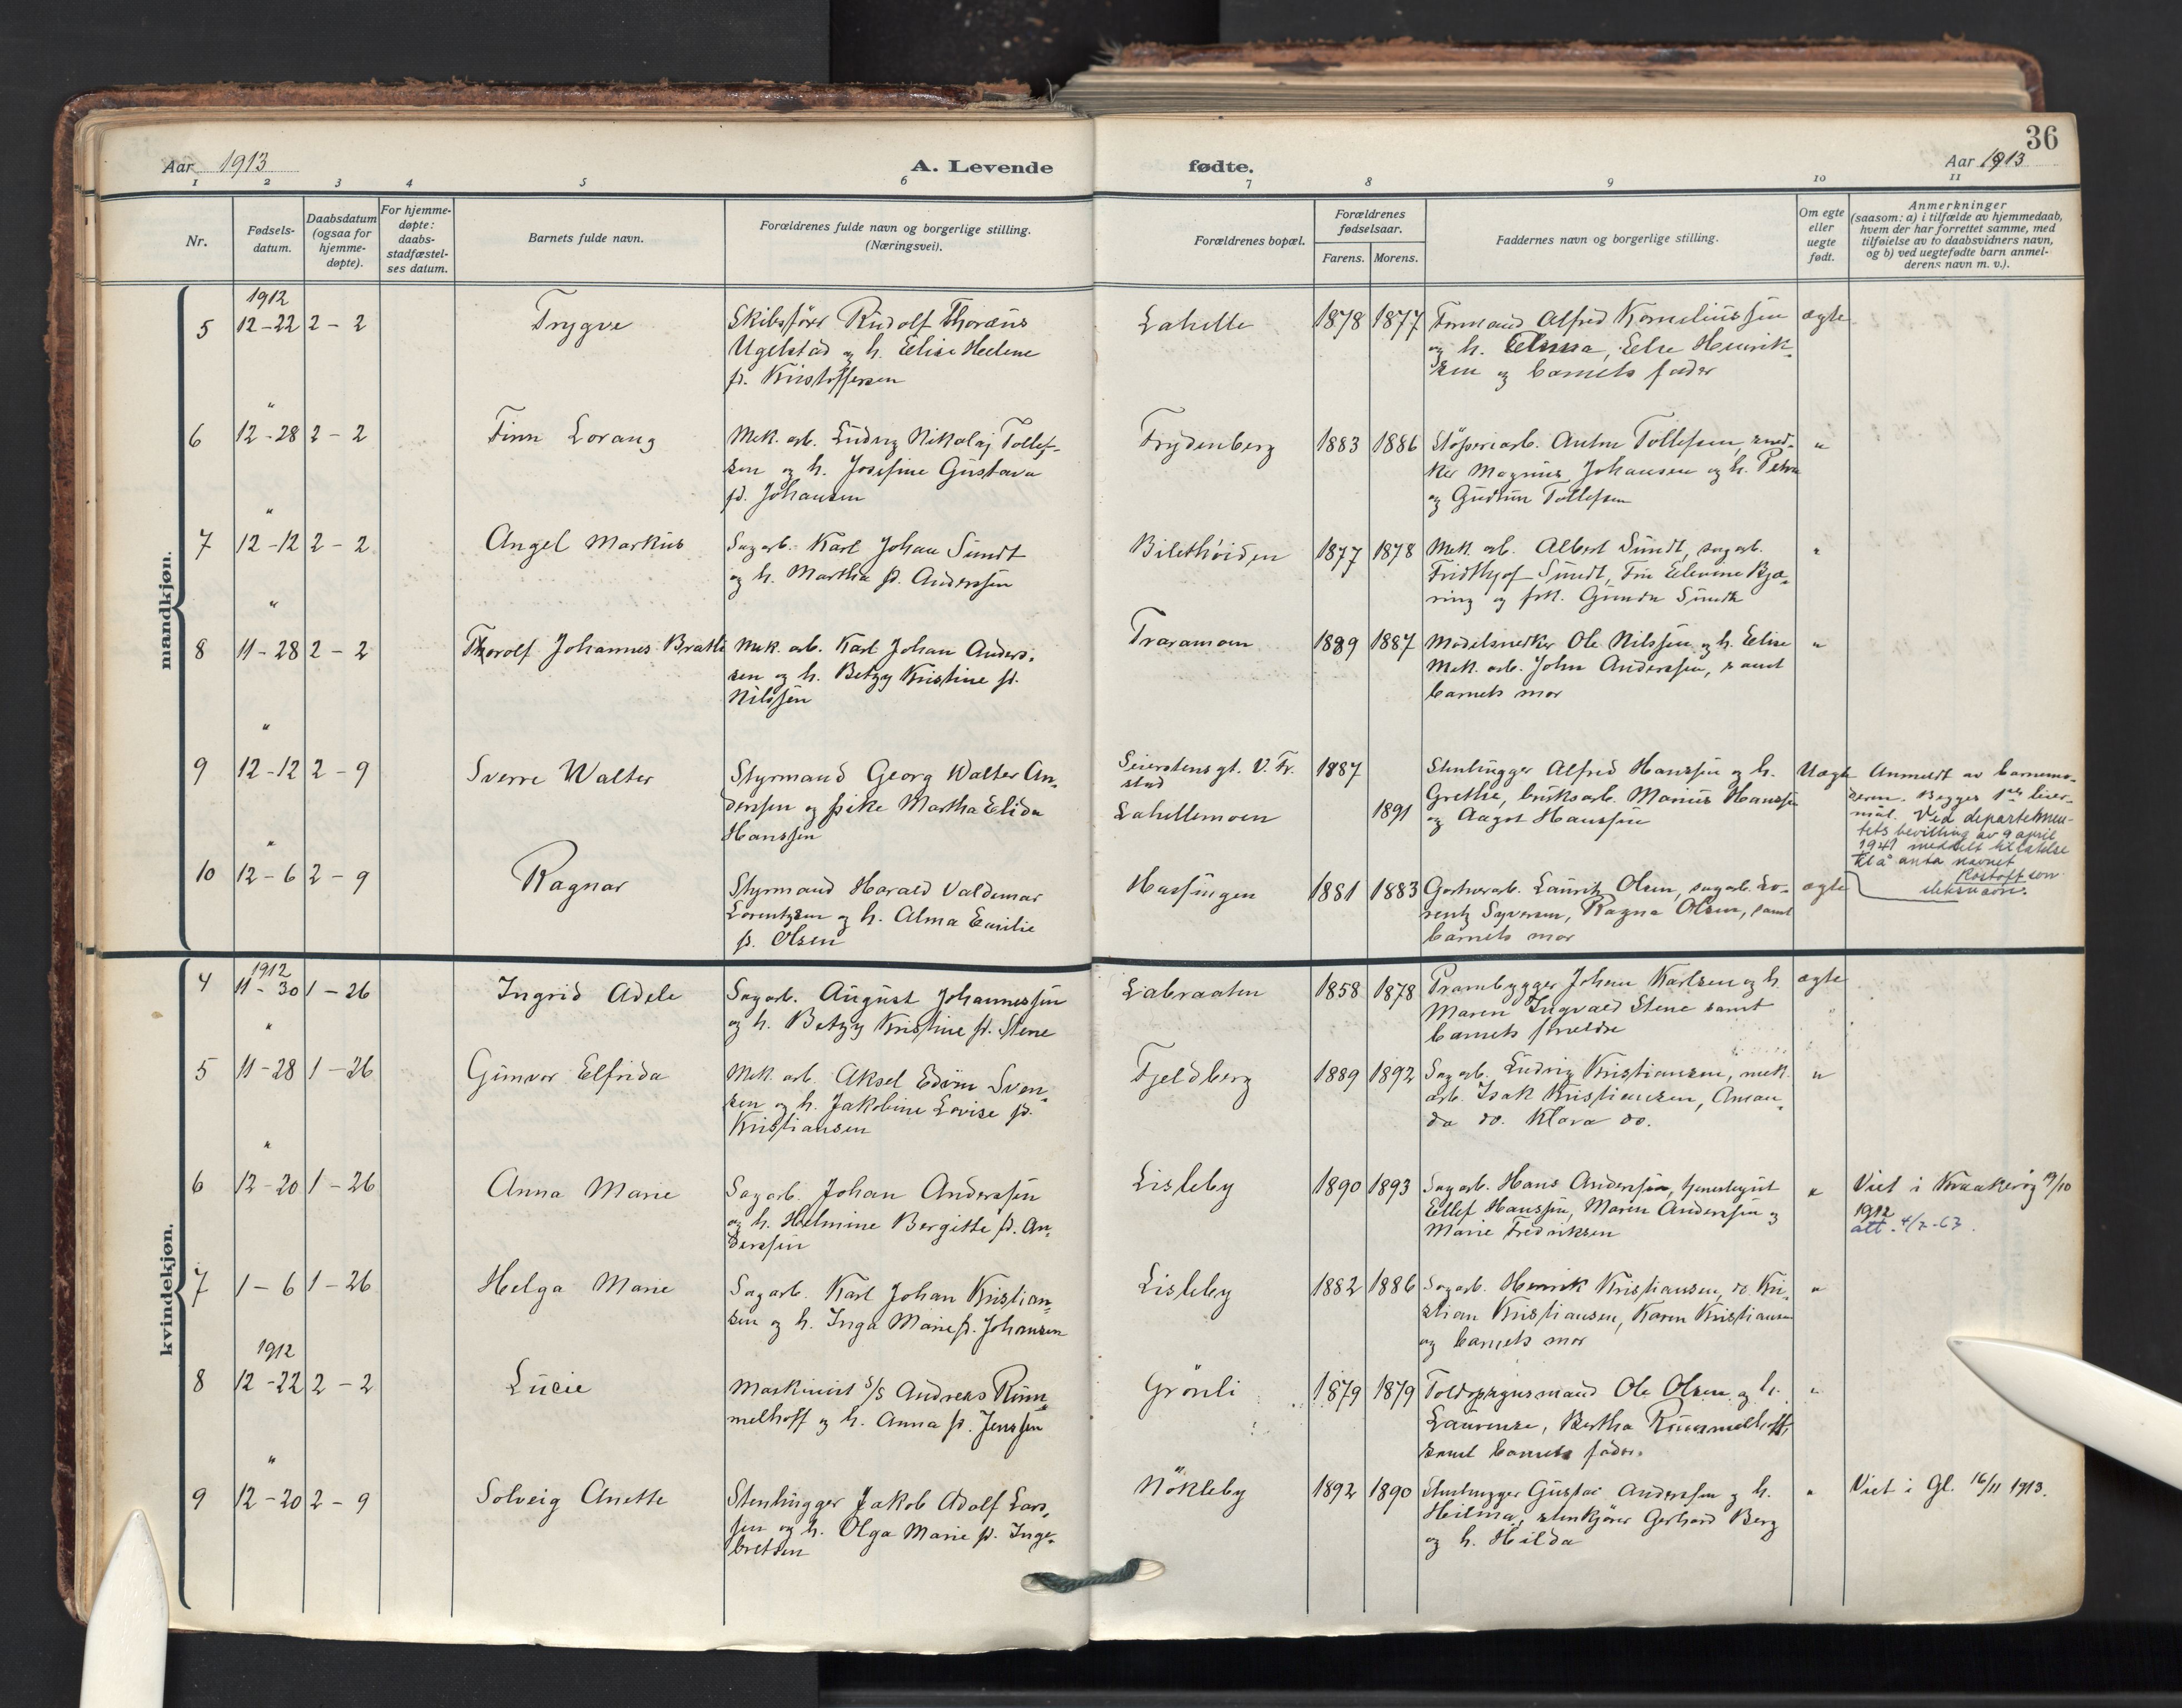 36
Aar 1913
A. Levende
fødte.
Aar 1913
1 2 3 4 5 6 7 8 9 10 11
Nr.
Fødsels-
datum.
Daabsdatum
(ogsaa for
hjemme-
døpte).
For hjemme-
døpte:
daabs-
stadfæstel-
ses datum.
Barnets fulde navn.
Forældrenes fulde navn og borgerlige stilling.
(Næringsvei).
Forældrenes bopæl.
Forældrenes
fødselsaar.
Farens. Morens.
Faddernes navn og borgerlige stilling.
Om egte
eller
uegte
født.
Anmerkninger
(saasom: a) i tilfælde av hjemmedaab,
hvem der har forrettet samme, med
tilføielse av to daabsvidners navn,
og b) ved uegtefødte barn anmel-
derens navn m. v.).
mandkjøn.
1912
5 12-22 2-2 Trygve
Skibsfører Rudolf Thoræus
Ugelstad og h. Elise Helene
f. Kristoffersen
Lahelle 1878 1877
Formand Alfred Korneliussen
og h. Elmina, Else Henrik-
sen og barnets fader
ægte
"
6 12-28 2-2 Finn Lorang
Mek. arb. Ludvig Nikolaj Tollef-
sen og h. Josefine Gustava
f. Johansen
Frydenberg 1883 1886
Støperiarb. Anton Tollefsen, sned-
ker Magnus Johansen og h. Petra
og Gudrun Tollefsen
"
"
7 12-12 2-2 Angel Markus
Sagarb. Karl Johan Sundt
og h. Martha f. Anderssen
Bilethöiden 1877 1878
Mek. arb. Albert Sundt, sagarb.
Fridthjof Sundt, Fru Elevine Bjæ-
ring og frk. Gunda Sundt
"
"
8 11-28 2-2 Thorolf Johannes Bratli
Mek. arb. Karl Johan Anders-
sen og h. Betzy Kristine f.
Nilssen
Traramoen 1889 1887
Modelsnedker Ole Nilssen og h. Elise
Mek. arb. John Anderssen, samt
barnets mor
"
"
9 12-12 2-9 Sverre Walter
Styrmand Georg Walter An-
derssen og pike Martha Elida
Hanssen
Seierstensgt. V. Fr.
stad
Lahellemoen
1887
1891
Stenhugger Alfred Hanssen og h.
Grethe, bruksarb. Marius Hanssen
og Aagot Hanssen
Uægte
Anmeldt av barnemo-
deren. Begges 1ste leier-
mål. Ved departemen-
tets bevilling av 9 april
1941 meddelt tillatelse
til å anta navnet
Rostoff som
slektsnavn.
"
10 12-6 2-9 Ragnar
Styrmand Harald Valdemar
Lorentzen og h. Alma Emilie
f. Olsen
Hassingen 1881 1883
Gartnerarb. Lauritz Olsen, sagarb. Lo-
rentz Syversen, Ragna Olsen, samt
barnets mor
ægte
kvindekjøn.
1912
4 11-30 1-26 Ingrid Adele
Sagarb. August Johannessen
og h. Betzy Kristine f. Stene
Labraaten 1858 1878
Prambygger Johan Karlsen og h.
Maren Ingvald Stene samt
barnets forældre
ægte
"
5 11-28 1-26 Gunvor Elfrida
Mek. arb. Aksel Edvin Sven-
sen og h. Jakobine Lovise f.
Kristiansen
Fjeldberg 1889 1892
Sagarb. Ludvig Kristiansen, mek.
arb. Isak Kristiansen, Aman-
da do. Klara do.
"
"
6 12-20 1-26 Anna Marie
Sagarb. Johan Anderssen
og h. Helmine Bergitte f. An-
derssen
Lisleby 1890 1893
Sagarb. Hans Anderssen,
Ellef Hanssen, Maren Anderssen og
Marie Fredriksen
"
Viet i Kraakerøy 19/10
1912
att. 4/7-63.
7 1-6 1-26 Helga Marie
Sagarb. Karl Johan Kristian-
sen og h. Inga Marie f. Johansen
Lisleby 1882 1886
Sagarb. Henrik Kristiansen, do. Kri-
stian Kristiansen, Karen Kristiansen
og barnets mor
"
1912
8 12-22 2-2 Lucie
Maskinist s/s Andreas Rum-
melhoff og h. Anna f. Jenssen
Grönli 1879 1879
Toldopsynsmand Ole Olsen og h.
Laurense, Bertha Rummelhoff,
samt barnets fader.
"
"
9 12-20 2-9 Solveig Anette
Stenhugger Jakob Adolf Lars-
sen og h. Olga Marie f. Inge-
bretsen
Nökleby 1892 1890
Stenhugger Gustav Anderssen og h.
Helma, stenkjører Gerhard Berg
og h. Hilda
"
Viet i Gl. 16/11 1913.